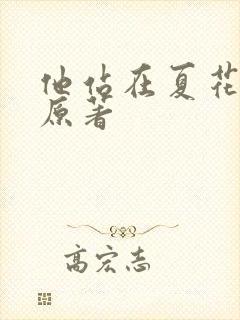 他站在夏花
原著
高宏志